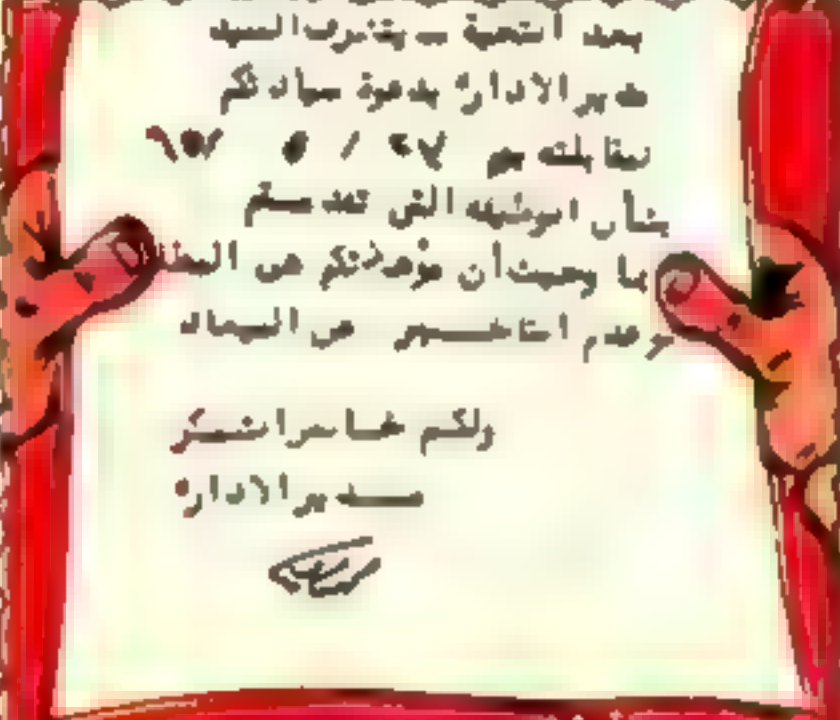 بعد التحية - يتشرف السيد
مدير الادارة بدعوة سيادتكم
لمقابلته يوم ٢٧ / ٥
بشأن الوظيفه التى تقدمتم
وحيث أن هى
وعدم التأخير عن الميعاد
ولكم خالص الشكر
مدير الادارة